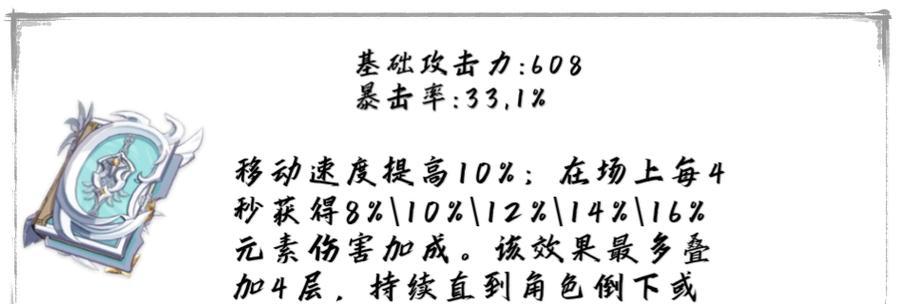 基础攻击力:608
暴击率:33.1%
移动速度提高10%;在场上每4
秒获得8%\10%\12%\14%\16%
元素伤害加成。该效果最多叠
加4层,持续直到角色倒下或